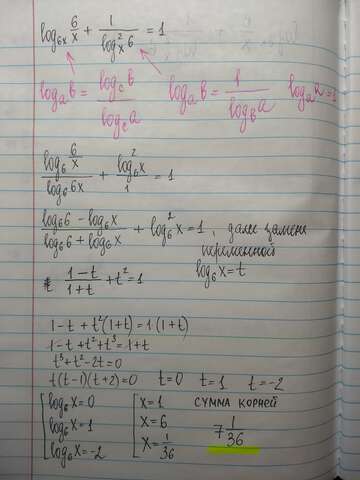 log₆ₓ 6/x + 1/log²ₓ6 = 1
logₐb = log_c b/log_c a   logₐb = 1/log_b a   logₐa = 1
log₆ 6/x / log₆6x + log²₆x/1 = 1
log₆6 - log₆x / log₆6 + log₆x + log²₆x = 1, далее замена
переменной
log₆x = t
1-t/1+t + t² = 1
1-t + t²(1+t) = 1·(1+t)
1-t+t²+t³ = 1+t
t³+t²-2t=0
t(t-1)(t+2)=0   t=0   t=1   t=-2
[log₆x=0   [x=1   сумма корней
log₆x=1   x=6   7 1/36
log₆x=-2   x=1/36